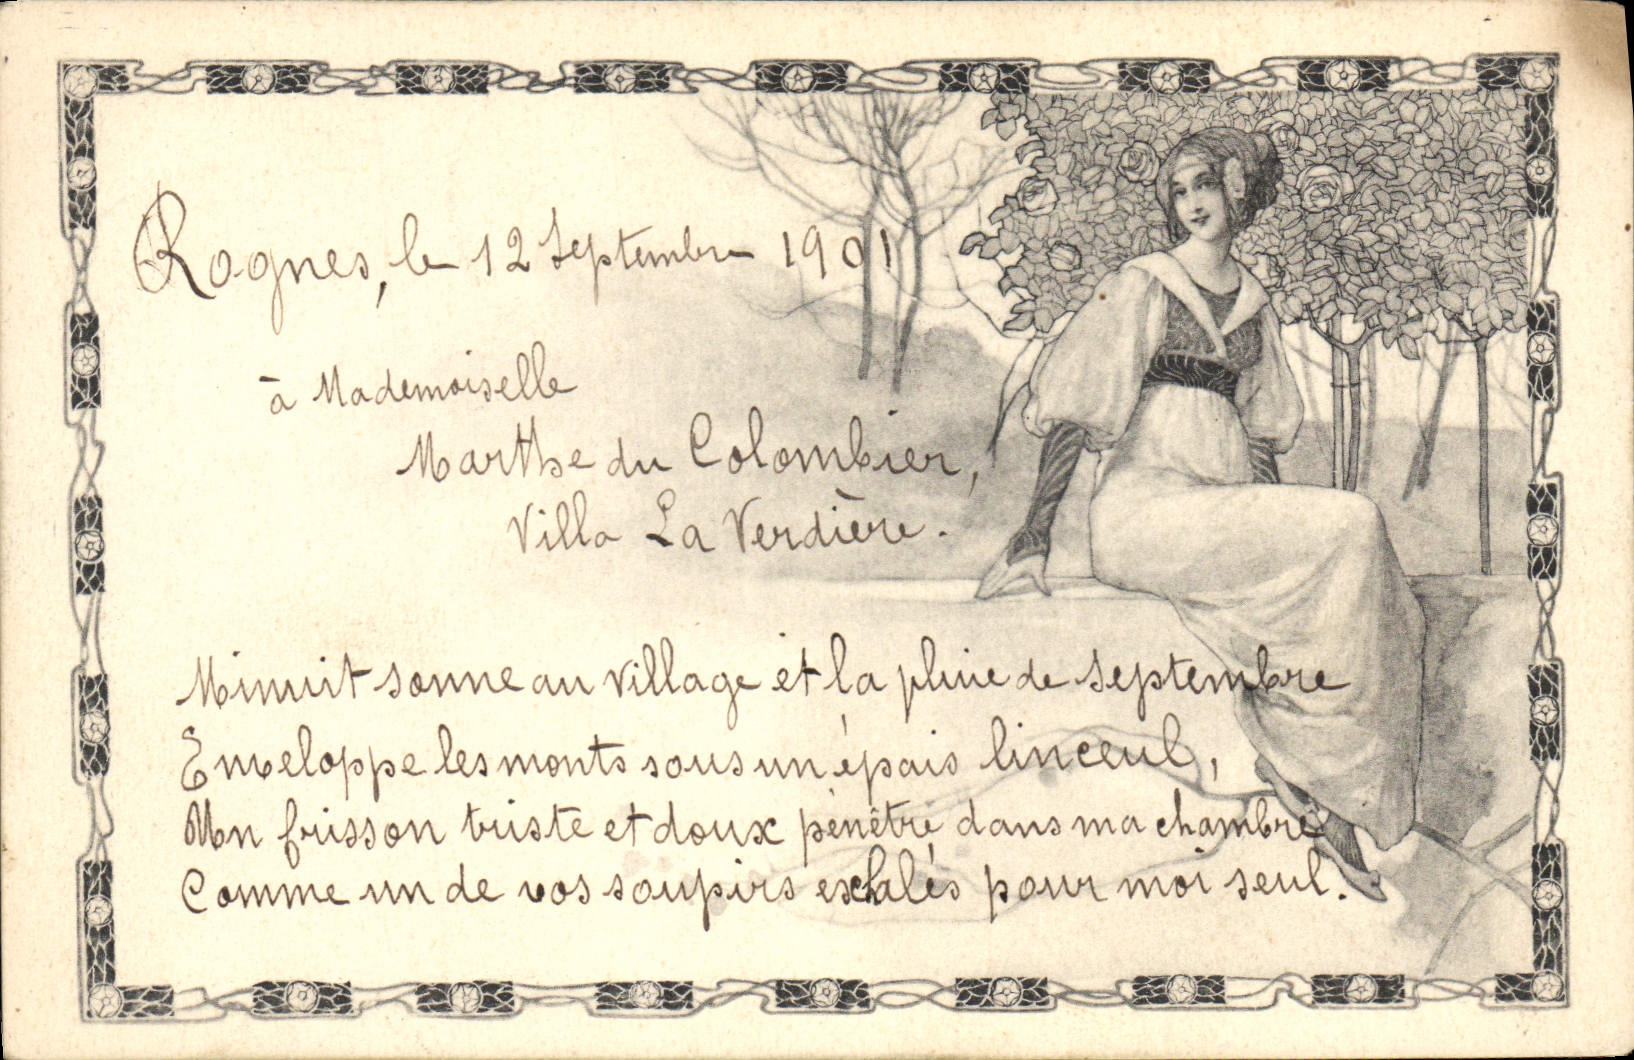 Rognes, le 12 Septembre 1901
à Mademoiselle
Marthe du Colombier,
Villa La Verdière.
Minuit sonne au village et la pluie de septembre
Enveloppe les monts sous un épais linceul,
Un frisson triste et doux pénètre dans ma chambre
Comme un de vos soupirs exhalés pour moi seul.